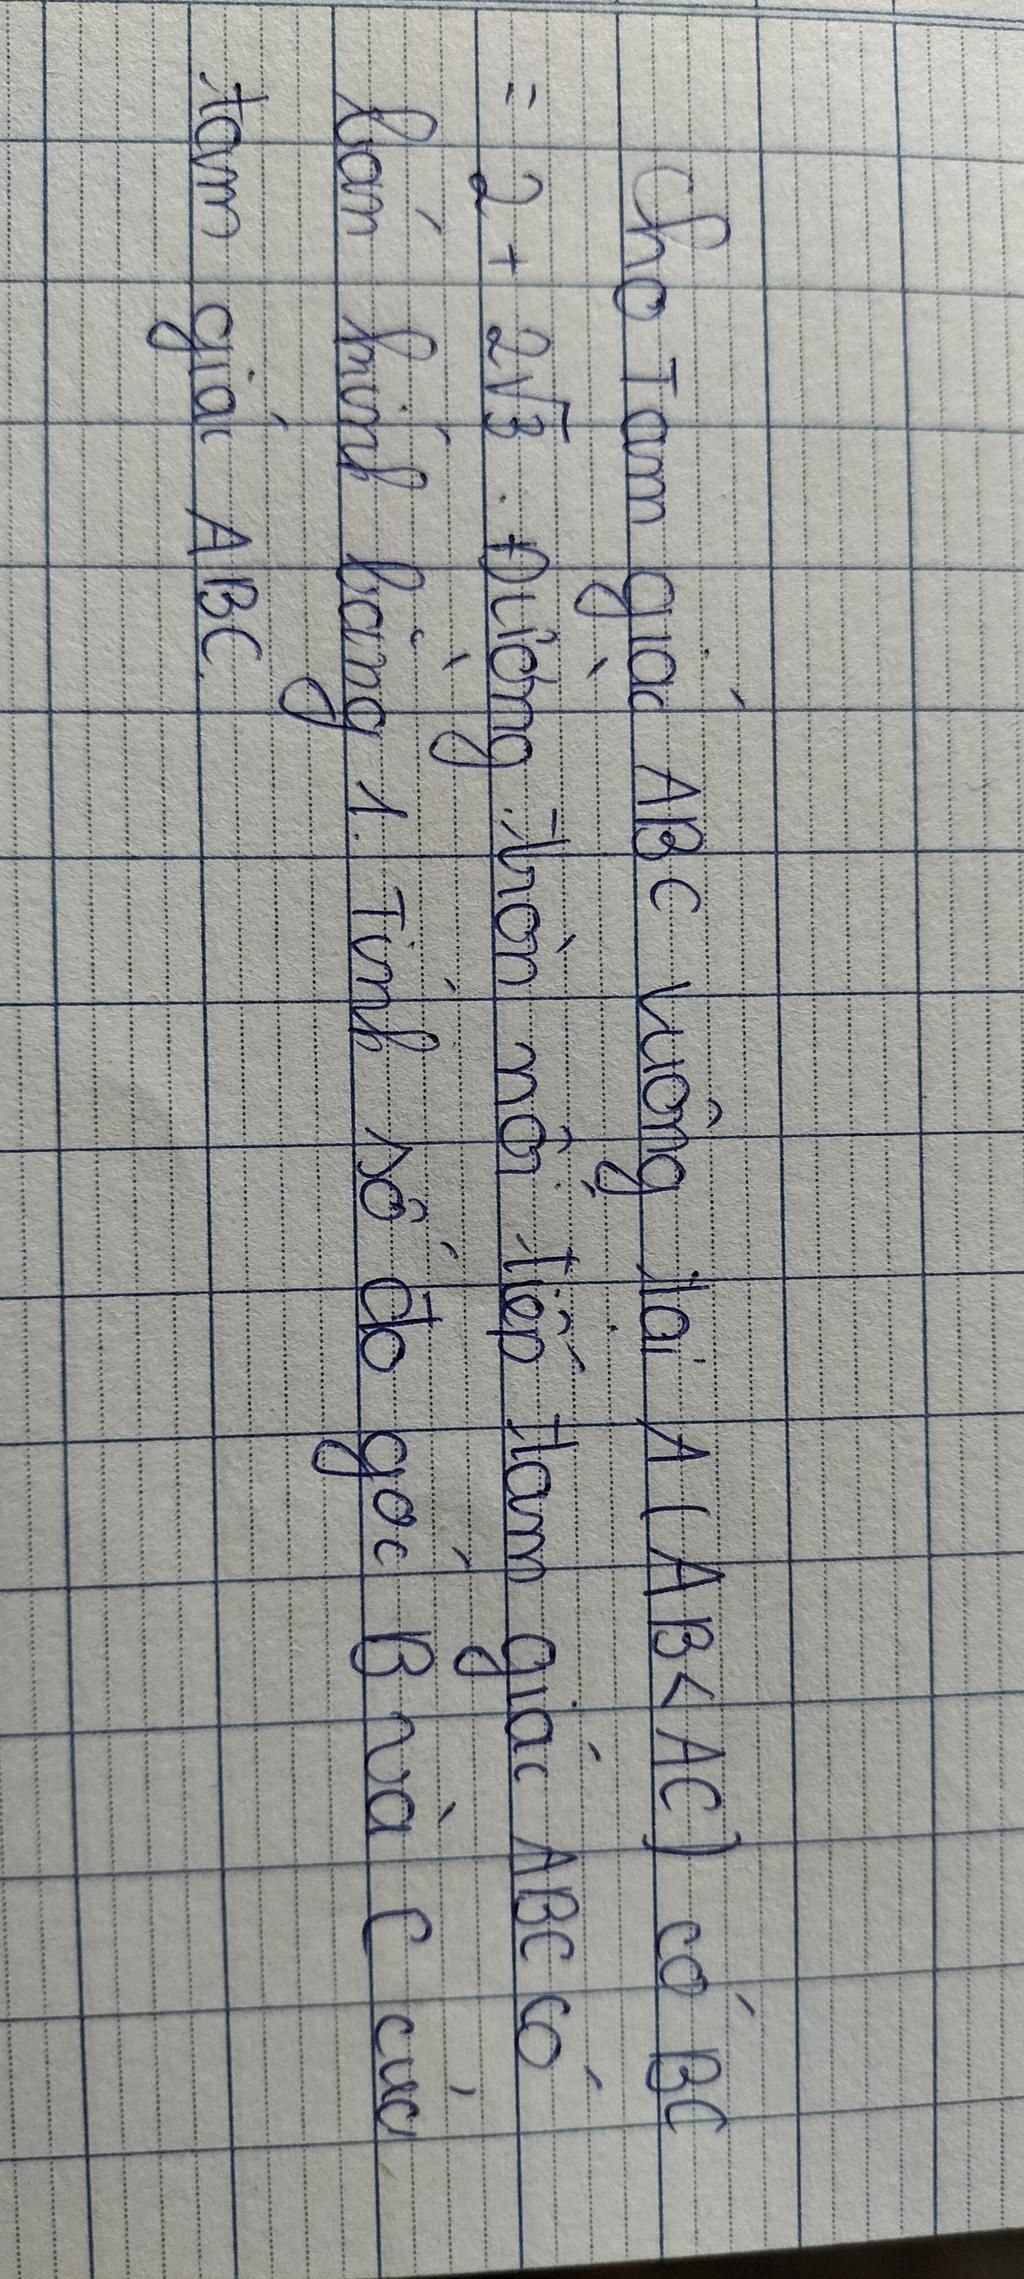 Cho Tam giác ABC vuông tại A (AB < AC) có BC
= 2 + 2√3. Đường tròn nội tiếp tam giác ABC có
bán kính bằng 1. Tính số đo góc B và C của
tam giác ABC.